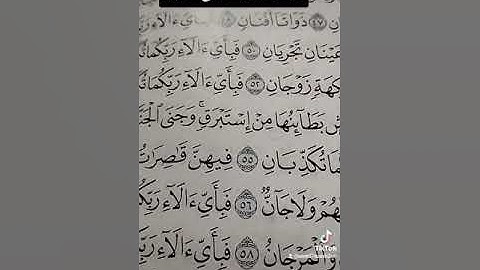 نِ ٤٧ ذَوَاتَآ أَفْنَانٍ
عَيْنَانِ تَجْرِيَانِ ٥٠ فَبِأَيِّ ءَالَآءِ رَبِّكُمَا
كِهَةٍ زَوْجَانِ ٥٢ فَبِأَيِّ ءَالَآءِ رَبِّكُمَا
شٍ بَطَآئِنُهَا مِنْ إِسْتَبْرَقٍ ۚ وَجَنَى الْجَنَّ
مَا تُكَذِّبَانِ ٥٥ فِيهِنَّ قَٰصِرَٰتُ
هُمْ وَلَا جَآنٌّ ٥٦ فَبِأَيِّ ءَالَآءِ رَبِّكُ
وَالْمَرْجَانُ ٥٨ فَبِأَيِّ ءَالَآءِ رَبِّ
TikTok